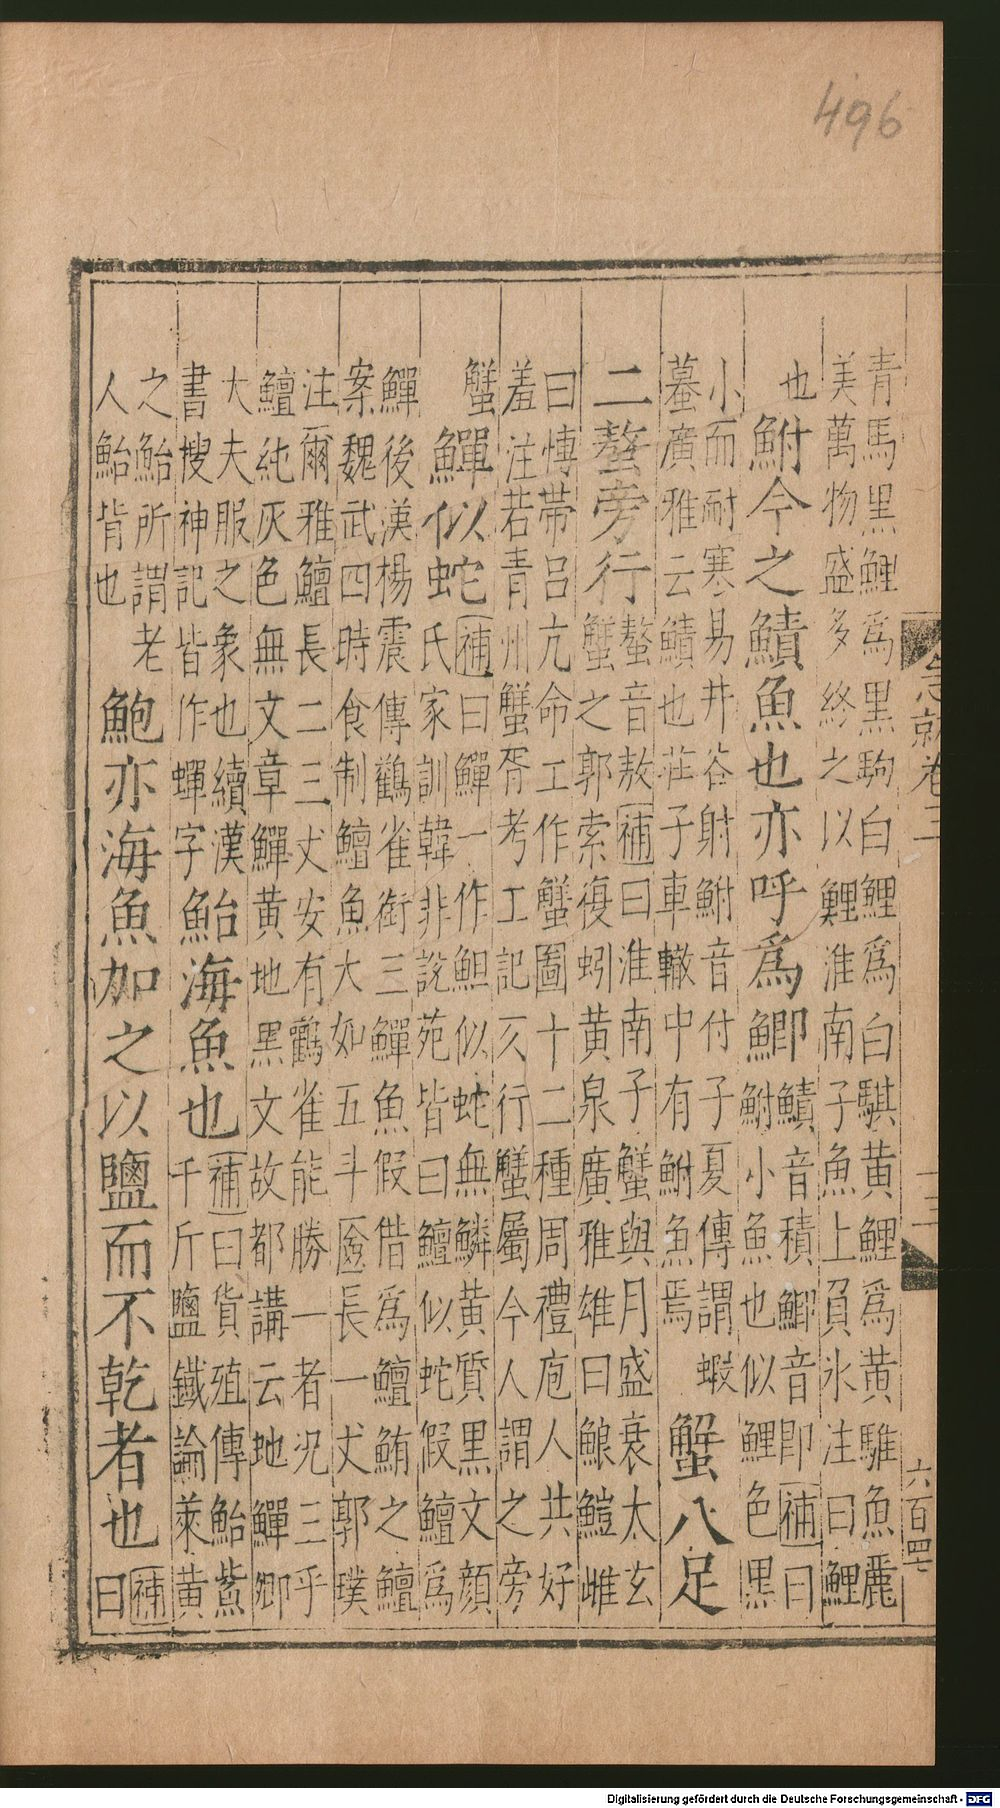 496
青馬黑鯉爲黑駒白鯉爲白騏黄鯉爲黄騅魚麗
美萬物盛多終之以鯉淮南子魚上負冰注曰鯉
也
鮒今之鰿魚也亦呼爲鯽
鰿音積鯽音即補曰
鮒小魚也似鯉色黑
小而耐寒易井谷射鮒音付子夏傳謂蝦
蟇廣雅云鰿也莊子車轍中有鮒魚焉
蟹八足
二螯旁行
螯音敖補曰淮南子蟹與月盛衰太玄
蟹之郭索後蚓黄泉廣雅雄曰䱶䲒雌
曰博帶吕亢命工作蟹圖十二種周禮庖人共好
羞注若青州蟹胥考工記仄行蟹屬今人謂之旁
蟹
鱓似蛇
補曰鱓一作䱇似蛇無鱗黄質黑文顔
氏家訓韓非說苑皆曰鱣似蛇假鱣爲
鱓後漢楊震傳鸛雀銜三鱓魚假借爲鱣鮪之鱣
案魏武四時食制鱣魚大如五斗匳長一丈郭璞
注爾雅鱣長二三丈安有鸛雀能勝一者况三乎
鱣純灰色無文章鱓黄地黑文故都講云地鱓卿
大夫服之象也續漢
書搜神記皆作蟬字
鮐海魚也
補曰貨殖傳鮐鮆
千斤鹽鐵論萊黄
之鮐所謂老
人鮐背也
鮑亦海魚加之以鹽而不乾者也
補
曰
急就卷三
六百四
Digitalisierung gefördert durch die Deutsche Forschungsgemeinschaft - DFG